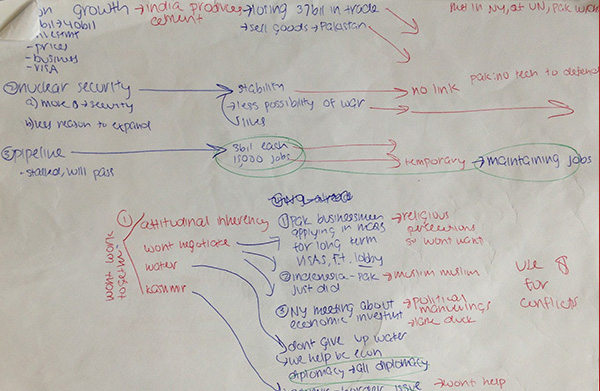 growth → India produces → losing 37bil in trade
cement
→ sell goods → Pakistan
met in NY, at UN, Pak
- prices
- business
- VISA
② nuclear security → stability → no link
pak: no tech to defend
a) more → security
→ less possibility of war
b) less reason to expand
lives
③ pipeline → 3bil each
15,000 jobs
temporary → maintaining jobs
- stalled, will pass
wont work
together
① attitudinal inherency
wont negotiate
water
kashmir
① Pak businessmen
applying in
for long term
VISAS, f.t. lobby
→ religious
perceptions
so wont want
② Indonesia - Pak
just did
→ muslim muslim
③ NY meeting about
economic
→ political
→ lame duck
use
for
conflicts
→ dont give up water
→ we help bc econ
diplomacy → all diplomacy
issue → wont help